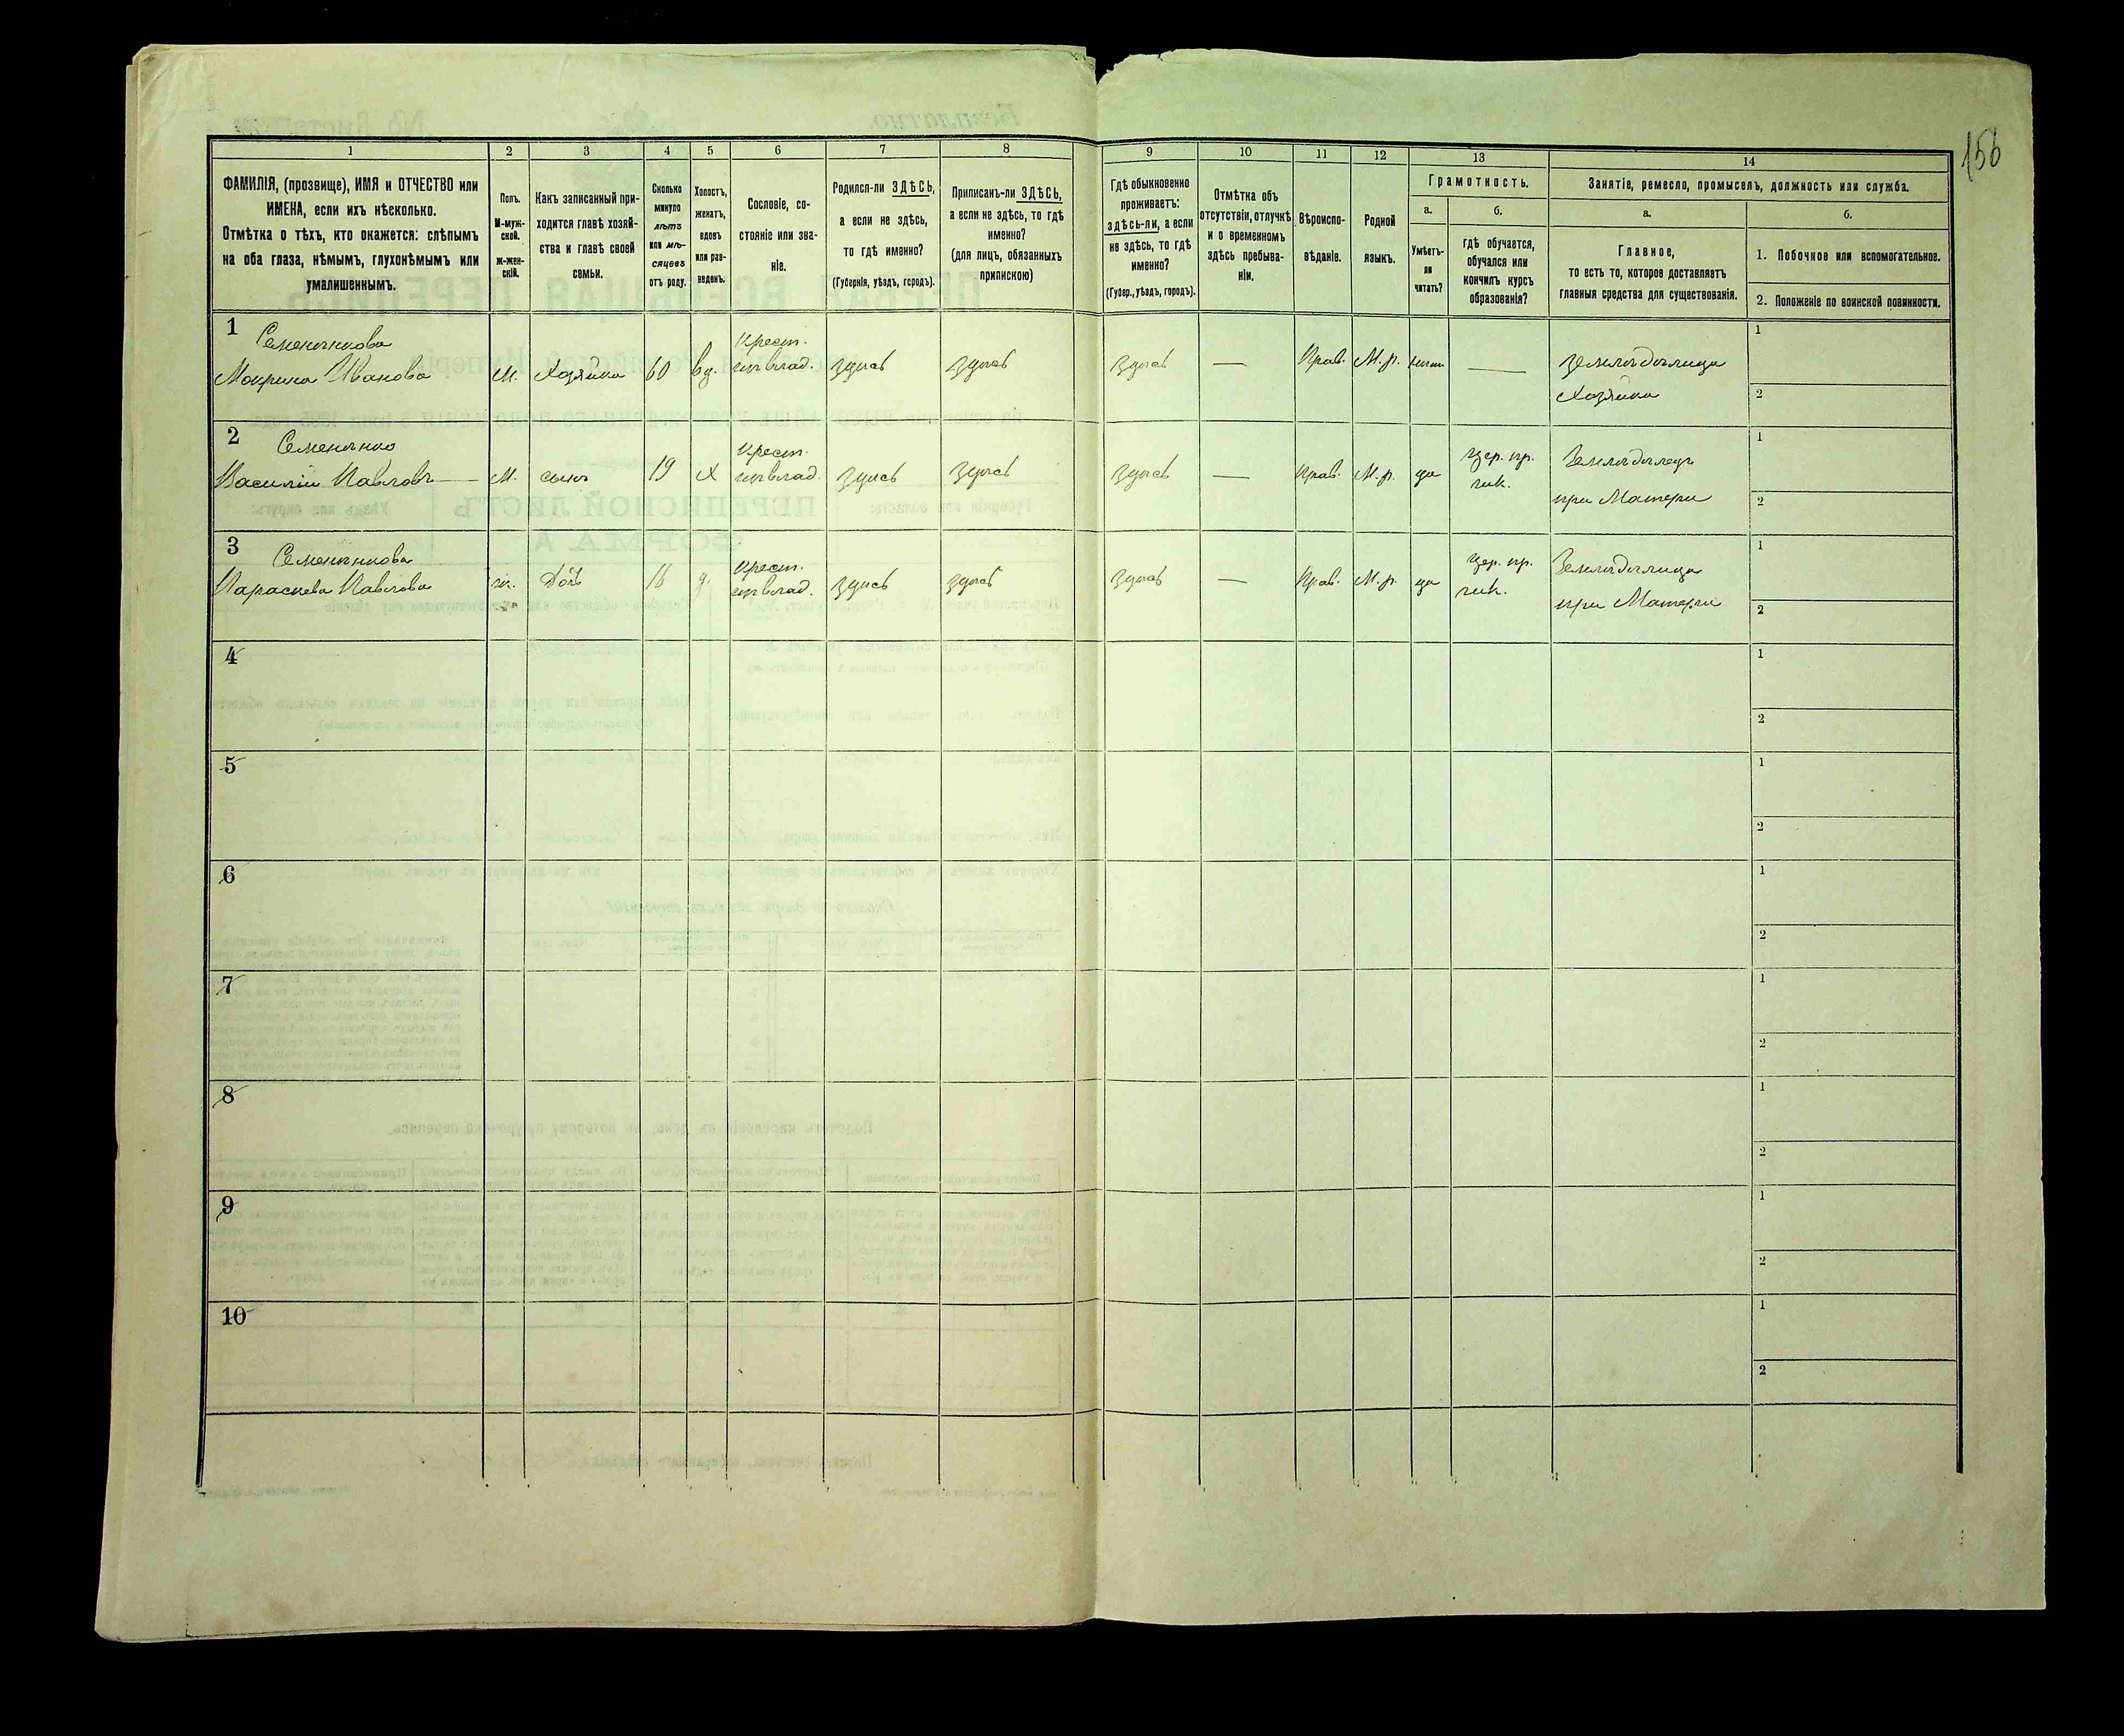 156
1 2 3 4 5 6 7 8 9 10 11 12 13 14
ФАМИЛІЯ, (прозвище), ИМЯ и ОТЧЕСТВО или
ИМЕНА, если ихъ нѣсколько.
Отмѣтка о тѣхъ, кто окажется: слѣпымъ
на оба глаза, нѣмымъ, глухонѣмымъ или
умалишеннымъ.
Полъ.
М-муж-
ской.
ж-жен-
скій.
Какъ записанный при-
ходится главѣ хозяй-
ства и главѣ своей
семьи.
Сколько
минуло
лѣтъ
или мѣ-
сяцевъ
отъ роду.
Холостъ,
женатъ,
вдовъ
или раз-
веденъ.
Сословіе, со-
стояніе или зва-
ніе.
Родился-ли ЗДѢСЬ,
а если не здѣсь,
то гдѣ именно?
(Губернія, уѣздъ, городъ).
Приписанъ-ли ЗДѢСЬ,
а если не здѣсь, то гдѣ
именно?
(для лицъ, обязанныхъ
припискою)
Гдѣ обыкновенно
проживаетъ:
здѣсь-ли, а если
не здѣсь, то гдѣ
именно?
(Губер., уѣздъ, городъ).
Отмѣтка объ
отсутствіи, отлучкѣ
и о временномъ
здѣсь пребыва-
ніи.
Вѣроиспо-
вѣданіе.
Родной
языкъ.
Грамотность.
а.
Умѣетъ-
ли
читать?
б.
гдѣ обучается,
обучался или
кончилъ курсъ
образованія?
Занятіе, ремесло, промыселъ, должность или служба.
а.
Главное,
то есть то, которое доставляетъ
главныя средства для существованія.
б.
1. Побочное или вспомогательное.
2. Положеніе по воинской повинности.
1 Семенякова Крест. 1
Макрина Иванова М. Хозяйка 60 вд. здѣсь здѣсь здѣсь — Прав. М.р. — Земледѣлица
Хозяйка 2
2 Крест. Цер. пр. Земледѣлецъ 1
Василій Павловъ М. сынъ 19 Х здѣсь здѣсь здѣсь — Прав. М.р. да
при Матери 2
3 Крест. Цер. пр. Земледѣлица 1
Параскева Павлова Дочь д. здѣсь здѣсь здѣсь — Прав. М.р. да
при Матери 2
4 1
2
5 1
2
6 1
2
7 1
2
8 1
2
9 1
2
10 1
2